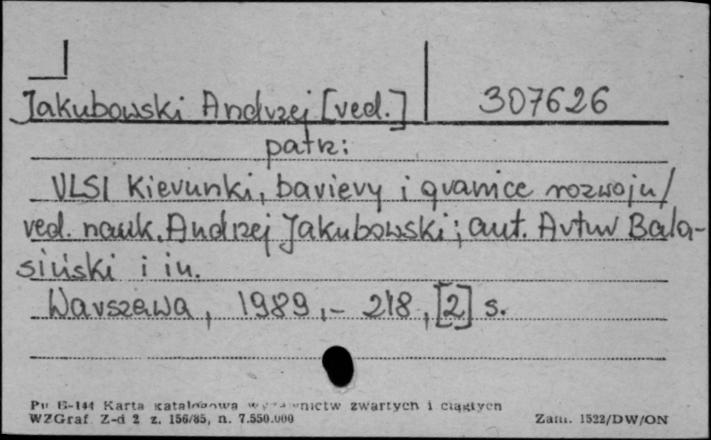 Jakubowski Andrzej [red.] 307626
patrz:
VLSI Kierunki, bariery i granice rozwoju /
red. nauk. Andrzej Jakubowski ; aut. Artur Bala-
siński i in.
Warszawa, 1989, - 218, [2] s.
Pu G-144 Karta katalogowa wydawnictw zwartych i ciągłych
WZGraf Z-d 2 z. 156/85, n. 7.550.000 Zam. 1522/DW/ON